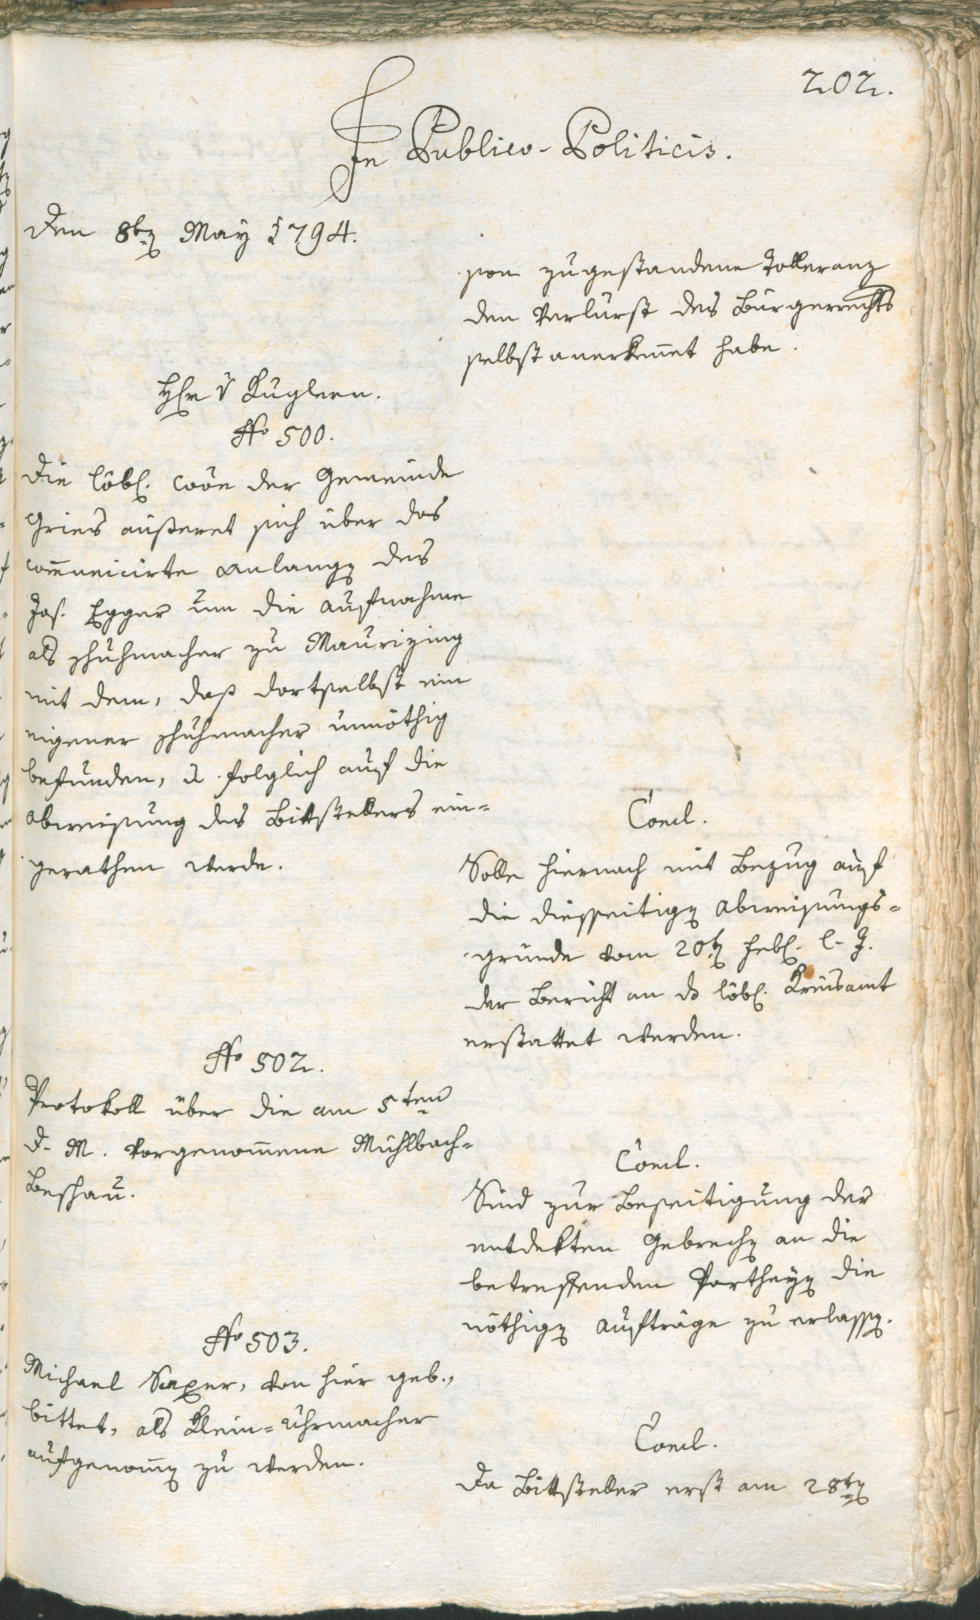 202.
In Publico-Politicis.
Den 8ten May 1794.
sion zugestandene Tolleranz
den Verlurst des Bürgerrechts
selbst anerkennet habe.
H. v Kuglern.
No 500.
Die löbl. Coon der Gemeinde
Gries äußeret sich über das
communicirte Anlangen des
Jos. Egger um die Aufnahme
als Schuhmacher zu Maurizing
mit dem, daß dortselbst ein
eigener Schuhmacher unnöthig
befunden, u. folglich auf die
Abweisung des Bittstellers ein=
gerathen werde.
Concl.
Solle hiernach mit Bezug auf
die diesseitigen Abweisungs=
gründe vom 20ten Febr. l. J.
der Bericht an d löbl. Kreisamt
erstattet werden.
No 502.
Protokoll über die am 5ten
d. M. vorgenommene Mühlbach=
Beschau.
Concl.
Sind zur Beseitigung der
entdekten Gebrechen an die
betreffenden Partheyen die
nöthigen Aufträge zu erlassen.
No 503.
Michael Saxer, von hier geb.,
bittet, als Klein=Uhrmacher
aufgenommen zu werden.
Concl.
Da Bittsteller erst am 28ten